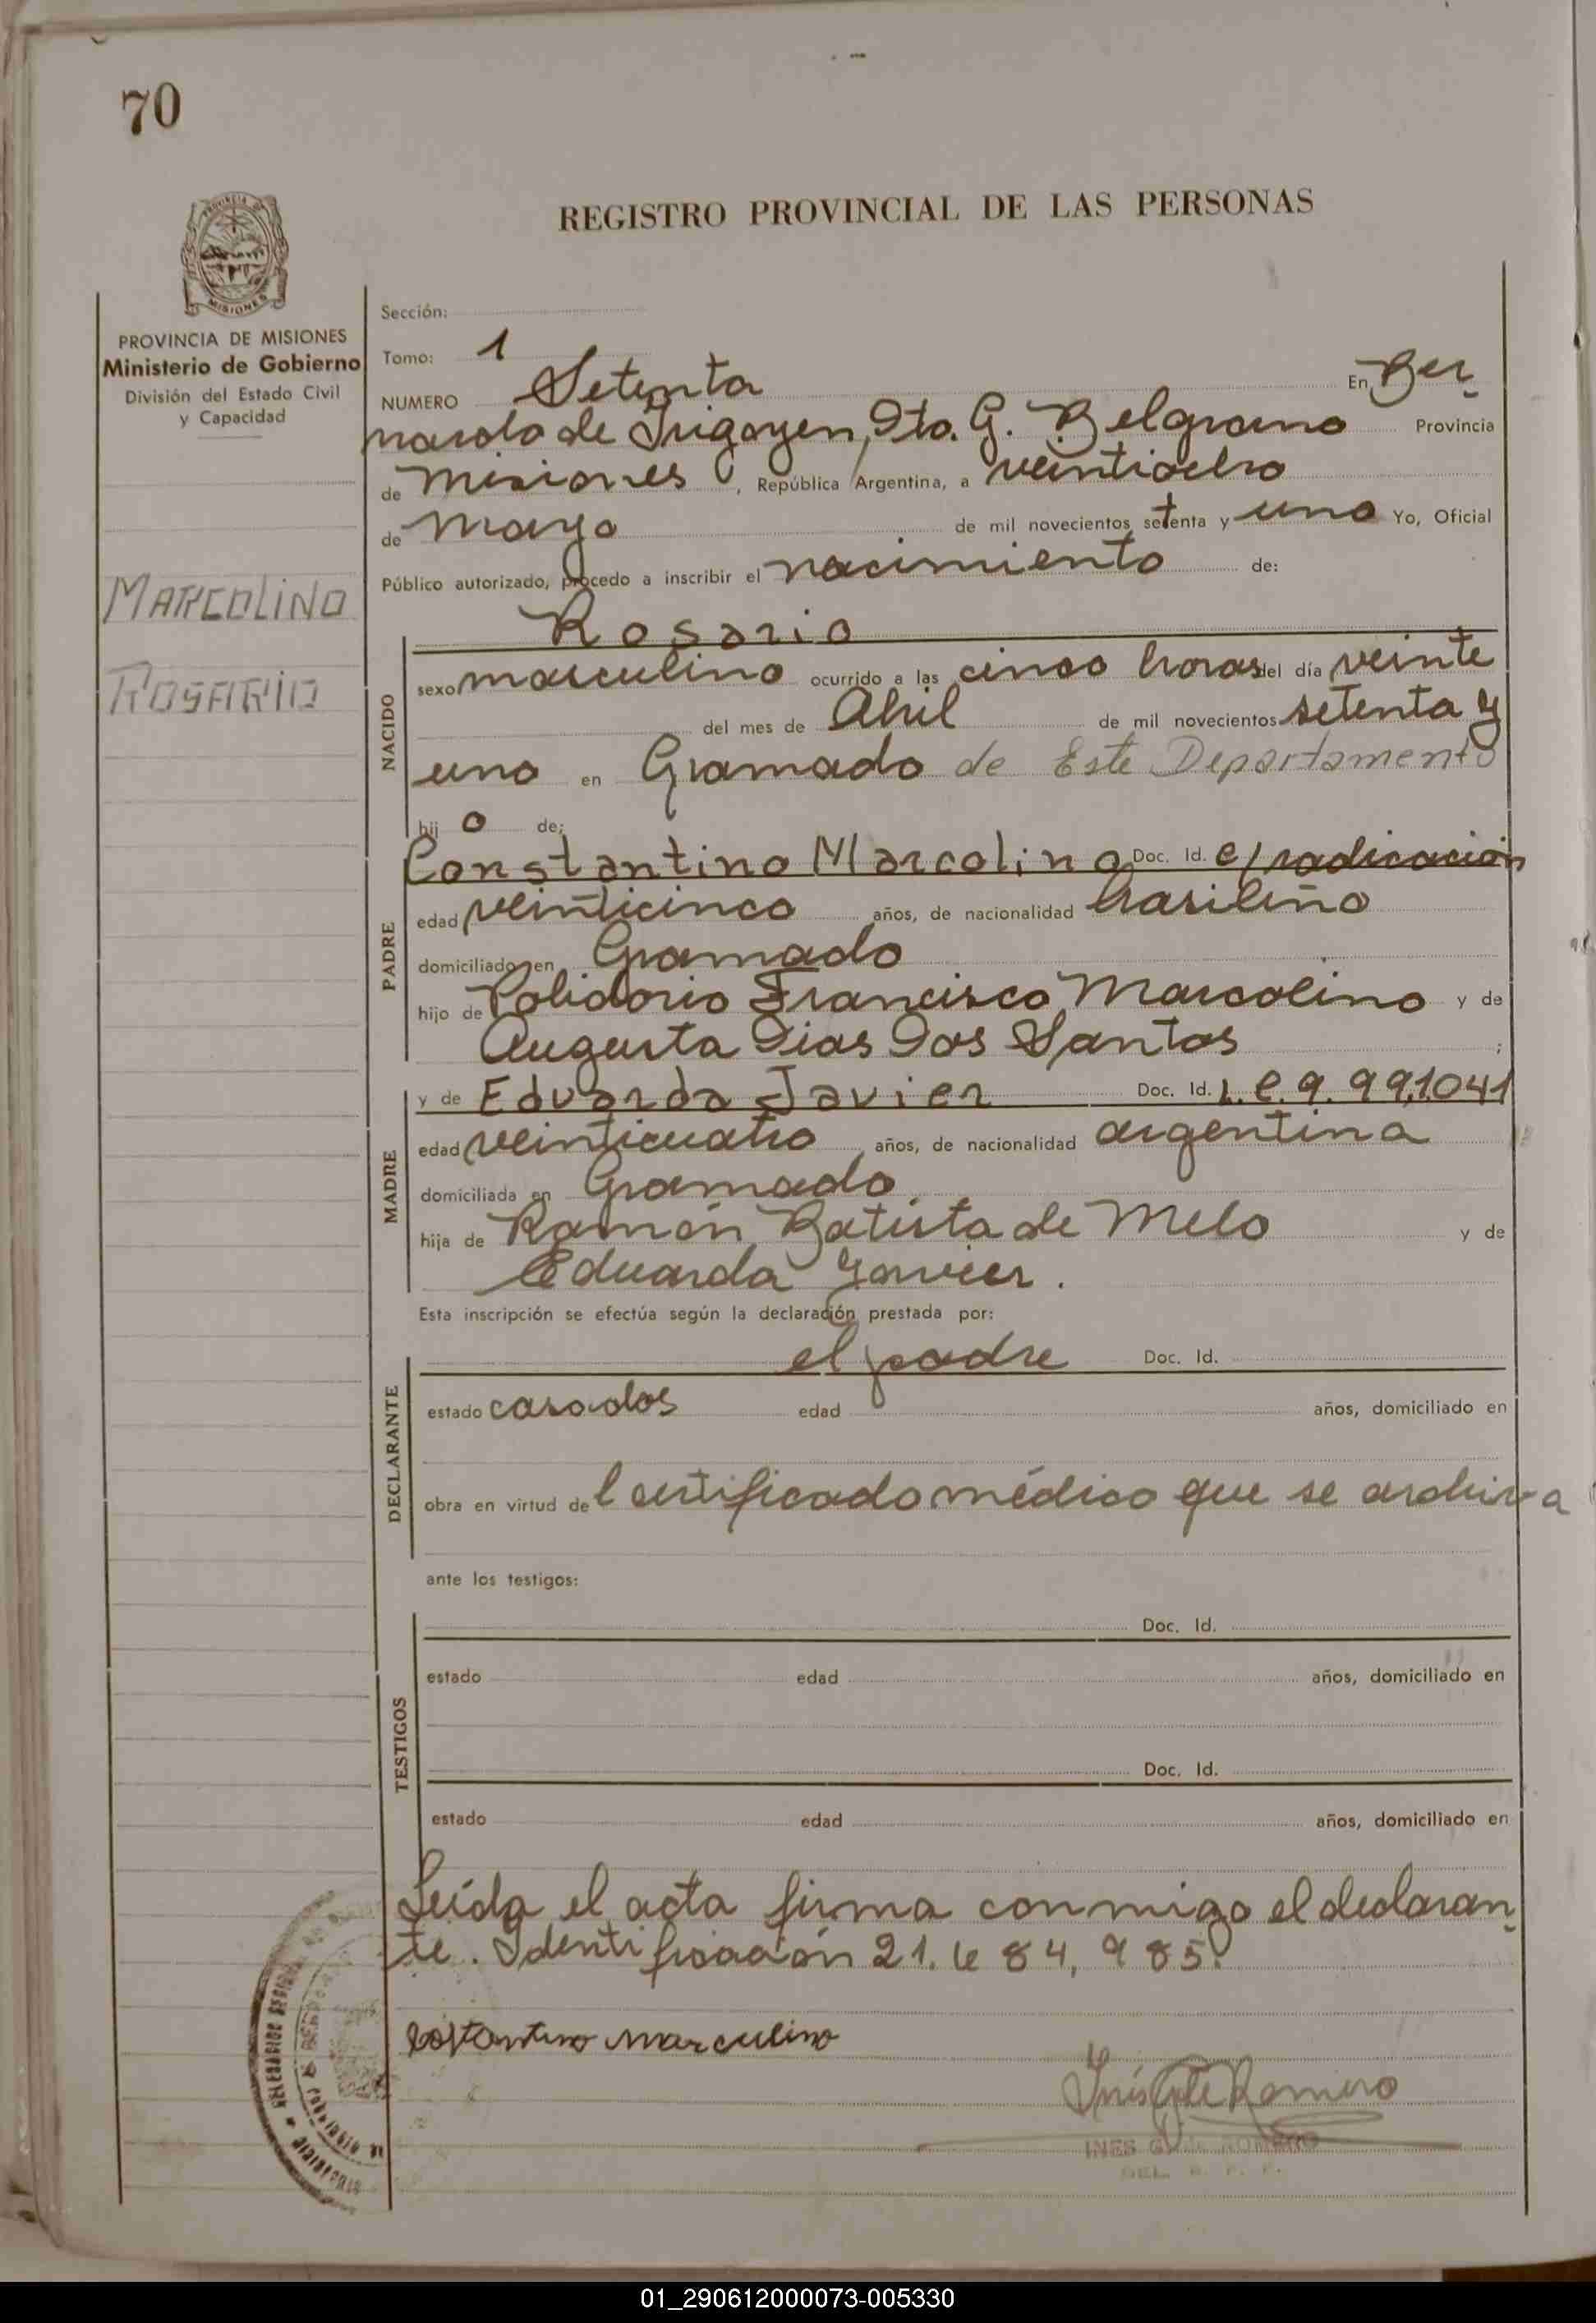 70
REGISTRO PROVINCIAL DE LAS PERSONAS
PROVINCIA DE
MISIONES
PROVINCIA DE MISIONES
Ministerio de Gobierno
División del Estado Civil
y Capacidad
MARCOLINO
ROSARIO
Sección:
Tomo: 1
NUMERO Setenta En Ber
nardo de Irigoyen, Dto. G. Belgrano Provincia
de Misiones, República Argentina, a veintiocho
de Mayo de mil novecientos setenta y uno Yo, Oficial
Público autorizado, procedo a inscribir el nacimiento de:
NACIDO
Rosario
sexo masculino ocurrido a las cinco horas del día veinte
del mes de Abril de mil novecientos setenta y
uno en Gramado de Este Departamento
hij o de:
PADRE
Constantino Marcolino Doc. Id. c/radicación
edad veinticinco años, de nacionalidad brasileño
domiciliado en Gramado
hijo de Polidorio Francisco Marcolino y de
Augusta Dias Dos Santos ;
MADRE
y de Eduarda Javier Doc. Id. L.C. 9.991.041
edad veinticuatro años, de nacionalidad argentina
domiciliada en Gramado
hija de Ramón Batista de Melo y de
Eduarda Javier.
Esta inscripción se efectúa según la declaración prestada por:
DECLARANTE
el padre Doc. Id.
estado casados edad años, domiciliado en
obra en virtud del certificado médico que se archiva
ante los testigos:
TESTIGOS
Doc. Id.
estado edad años, domiciliado en
Doc. Id.
estado edad años, domiciliado en
Leída el acta firma conmigo el declaran
te. Identificación 21.684.985.
Costantino Marculino
Inés G de Romero
INES G. de ROMERO
DEL. R. P. P.
01_290612000073-005330